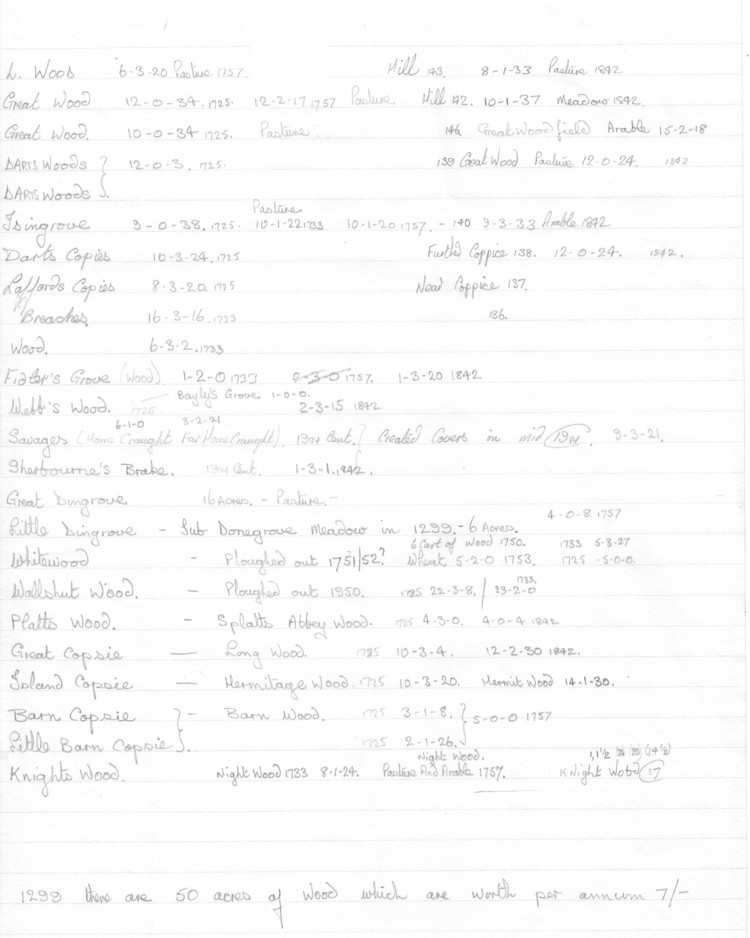 L. Wood 6-3-20 Pasture 1757. Hill 143. 8-1-33 Pasture 1842
Great Wood 12-0-34. 1725. 12-2-17 1757 Pasture Hill 142. 10-1-37 Meadow 1842.
Great Wood. 10-0-34 1725. Pasture. 146 Great Wood field Arable 15-2-18
DARTS Woods } 12-0-3. 1725. 139 Great Wood Pasture 12-0-24. 1842
DARTS Woods }.
Pasture
Isingrove 9-0-38. 1725. 10-1-22 1733 10-1-20 1757. - 140 9-3-33 Arable 1842
Darts Copies 10-3-24. 1725 Further Coppice 138. 12-0-24. 1842.
Laffords Copies 8-3-20. 1725 Near Coppice 137.
Breaches 16-3-16. 1733 136.
Wood. 6-3-2. 1733
Fidler's Grove (Wood) 1-2-0 1733 1757. 1-3-20 1842
Bayly's Grove 1-0-0.
Webb's Wood. 1725 2-3-15 1842
6-1-0 3-2-21
Savages (Home Craught Far Home Craught). 19th Cent. } Created Covers in mid 19th. 9-3-21.
Sherbourne's Brake. 19th Cent. 1-3-1. 1842.
Great Dingrove 16 Acres. - Pasture -
4-0-8 1757
Little Dingrove - Sub Donegrove Meadow in 1299. - 6 Acres.
6 Part of Wood 1750. 1733 5-3-27
Whitewood - Ploughed out 1751/52? Wheat 5-2-0 1753. 1725 .5-0-0.
1733.
Wallshut Wood. - Ploughed out 1950. 1725 22-3-8. / 23-2-0
Platts Wood. - Splatts Abbey Wood. 1725 4-3-0. 4-0-4 1842
Great Copsie — Long Wood. 1725 10-3-4. 12-2-30 1842.
Island Copsie — Hermitage Wood. 1725 10-3-20. Hermit Wood 14-1-30.
Barn Copsie } - Barn Wood. 1725 3-1-8. } 5-0-0 1757
Little Barn Copsie }. 1725 2-1-26.
Night Wood.
Knights Wood. Night Wood 1733 8-1-24. Pasture And Arable 1757. Knight Wood 17
1299 there are 50 acres of Wood which are worth per annum 7/-